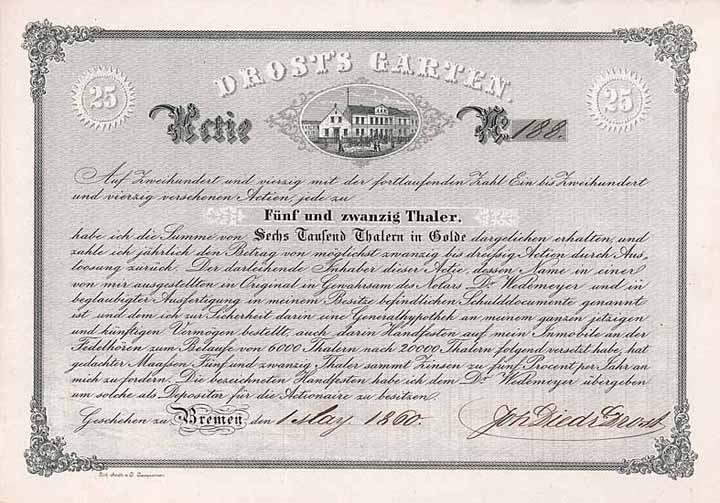 DROST'S GARTEN.
25
25
Actie
No. 188.
Auf Zweihundert und vierzig mit der fortlaufenden Zahl Ein bis Zweihundert
und vierzig versehenen Actien, jede zu
Fünf und zwanzig Thaler.
habe ich die Summe von Sechs Tausend Thalern in Golde dargeliehen erhalten, und
zahle ich jährlich den Betrag von möglichst zwanzig bis dreissig Actien durch Aus-
loosung zurück. Der darleihende Inhaber dieser Actie, dessen Name in einer
von mir ausgestellten in Original in Gewahrsam des Notars Dr. Wedemeyer und in
beglaubigter Ausfertigung in meinem Besitze befindlichen Schulddocumente genannt
ist und dem ich zur Sicherheit darin eine Generalhypothek an meinem ganzen jetzigen
und künftigen Vermögen bestellt, auch darin Handfesten auf mein Inmobile an der
Fedelhören zum Belaufe von 6000 Thalern nach 20000 Thalern folgend versetzt habe, hat
gedachter Maassen Fünf und zwanzig Thaler sammt Zinsen zu fünf Procent per Jahr an
mich zu fordern. Die bezeichneten Handfesten habe ich dem Dr. Wedemeyer übergeben
um solche als Depositar für die Actionaire zu besitzen.
Geschehen zu Bremen, den 1 May 1860.
Joh Diedr Drost